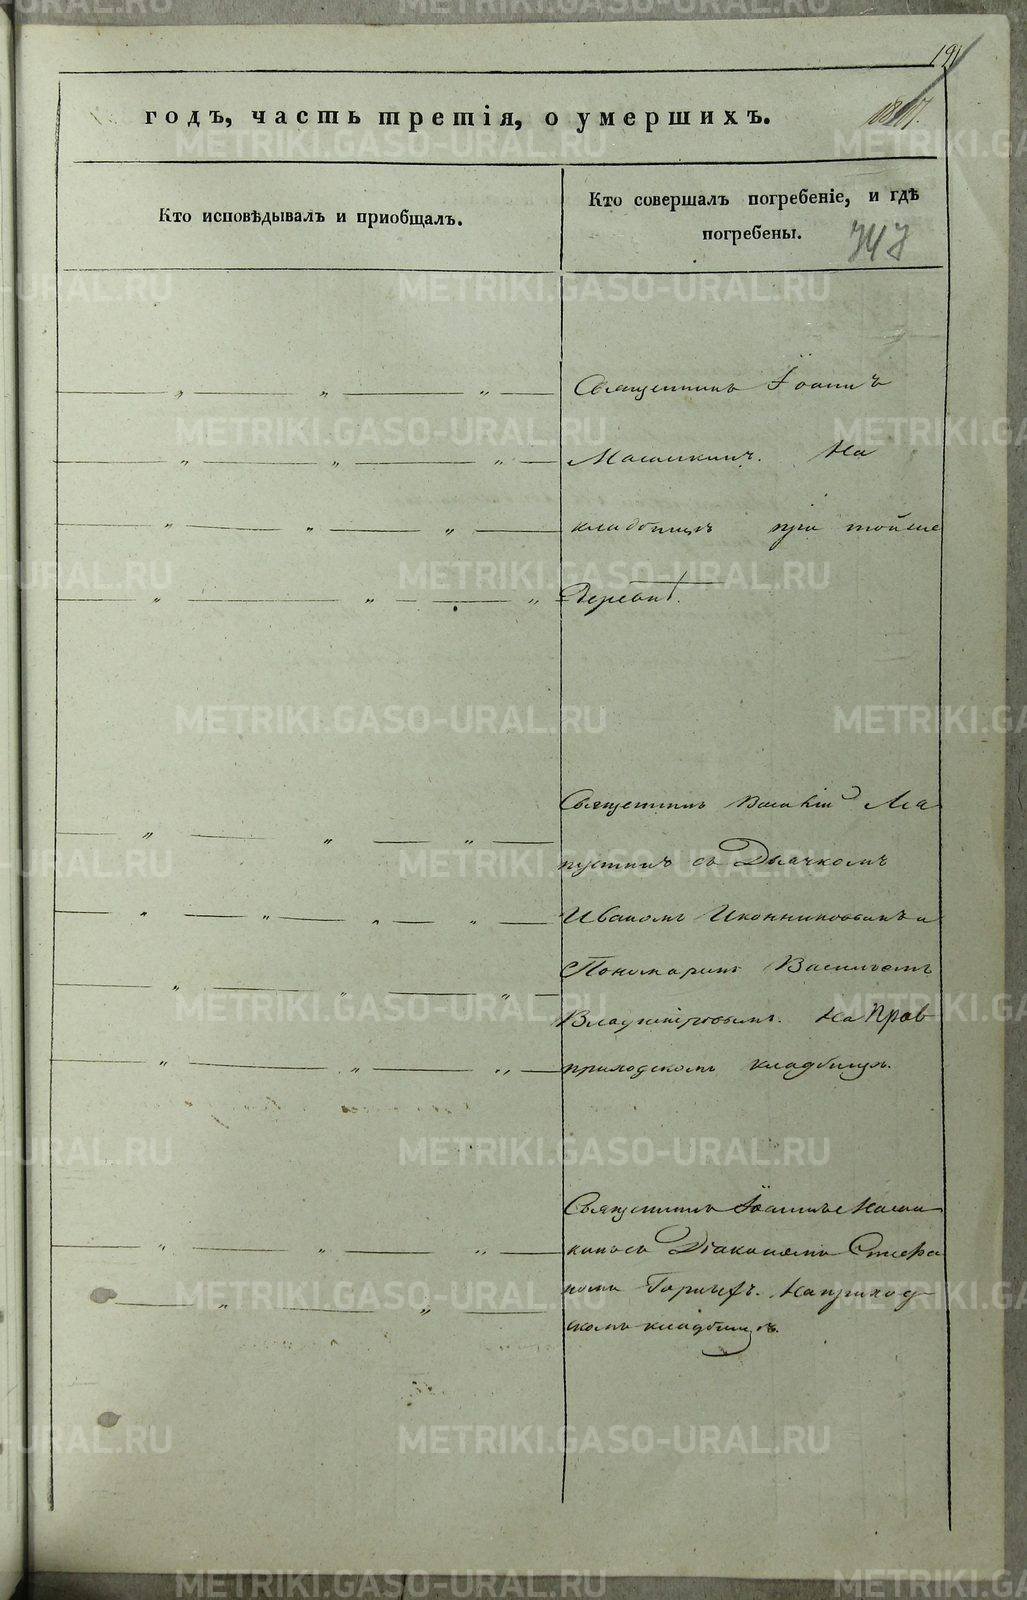 191
годъ, часть третія, о умершихъ.
Кто исповѣдывалъ и приобщалъ.
Кто совершалъ погребеніе, и гдѣ
погребены.
747
Священникъ Іоаннъ
На
кладбищѣ при тойже
Деревнѣ.
Священникъ Василій Ла
пустинъ съ Дьячкомъ
Иваномъ Иконниковымъ и
Пономаремъ Васильемъ
На
приходскомъ кладбищѣ.
Священникъ Іоаннъ
Діакономъ Стефа
номъ На приход
скомъ кладбищѣ.
METRIKI.GASO-URAL.RU